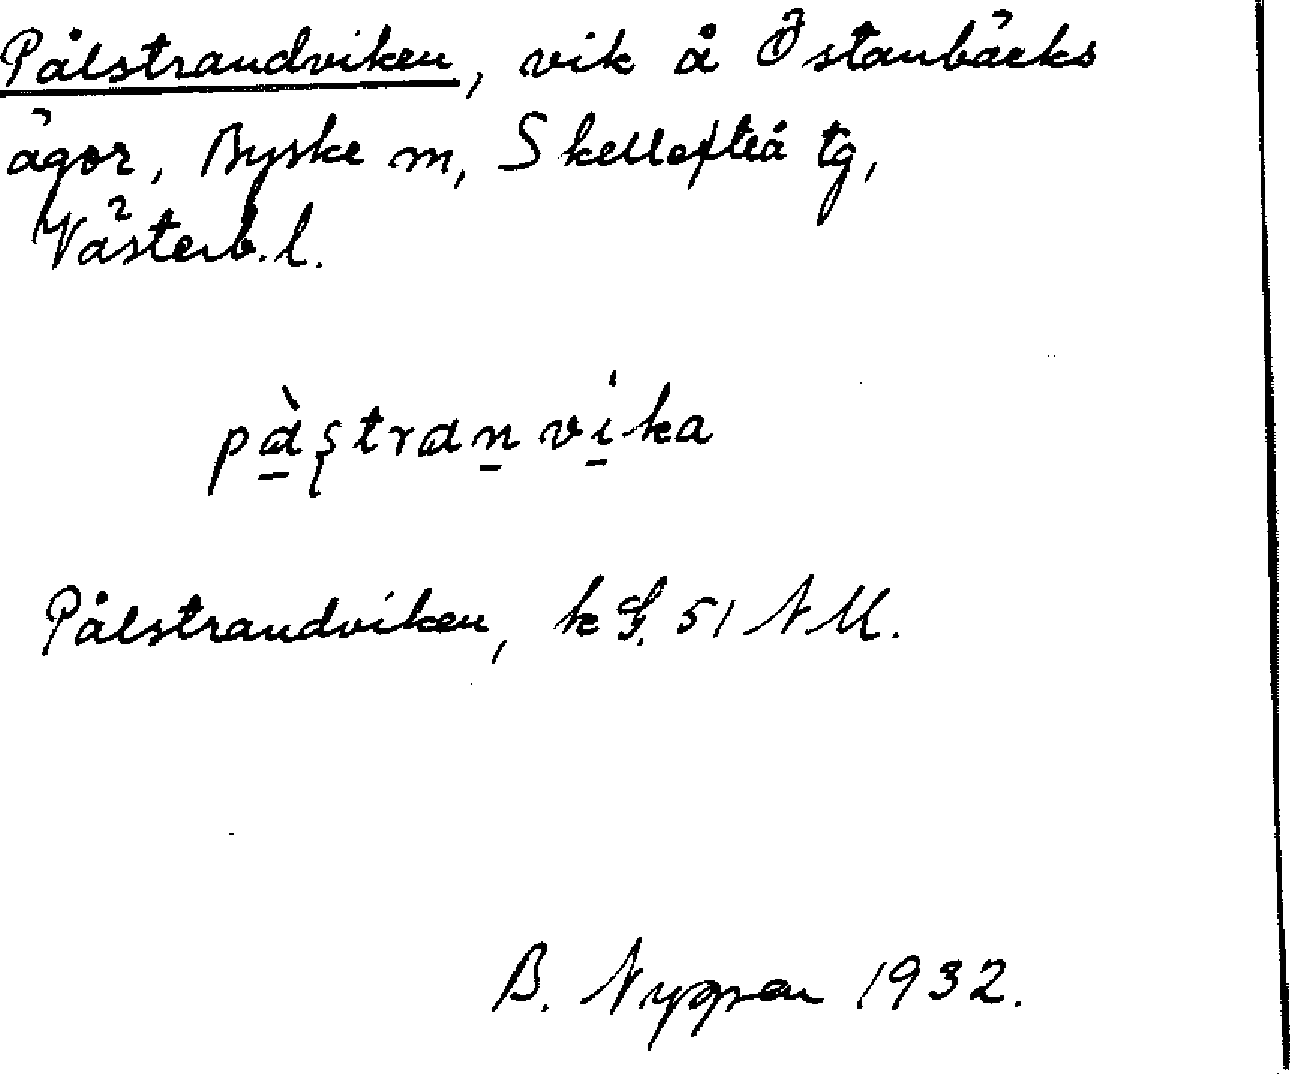 Pålstrandviken, vik å Östanbäcks
ägor, Byske sn, Skellefteå tg,
Västerb. l.
pàʂtranvika
Pålstrandviken, k 51 NM.
B. 1932.